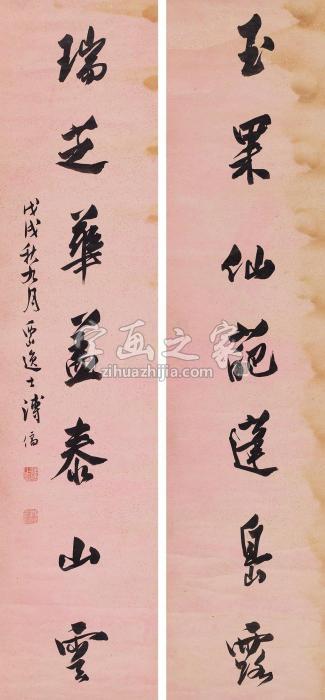 玉果仙葩蓬島露
瑞芝華蓋泰山雲
戊戌秋九月西山逸士溥儒
字画之家
zihuazhijia.com